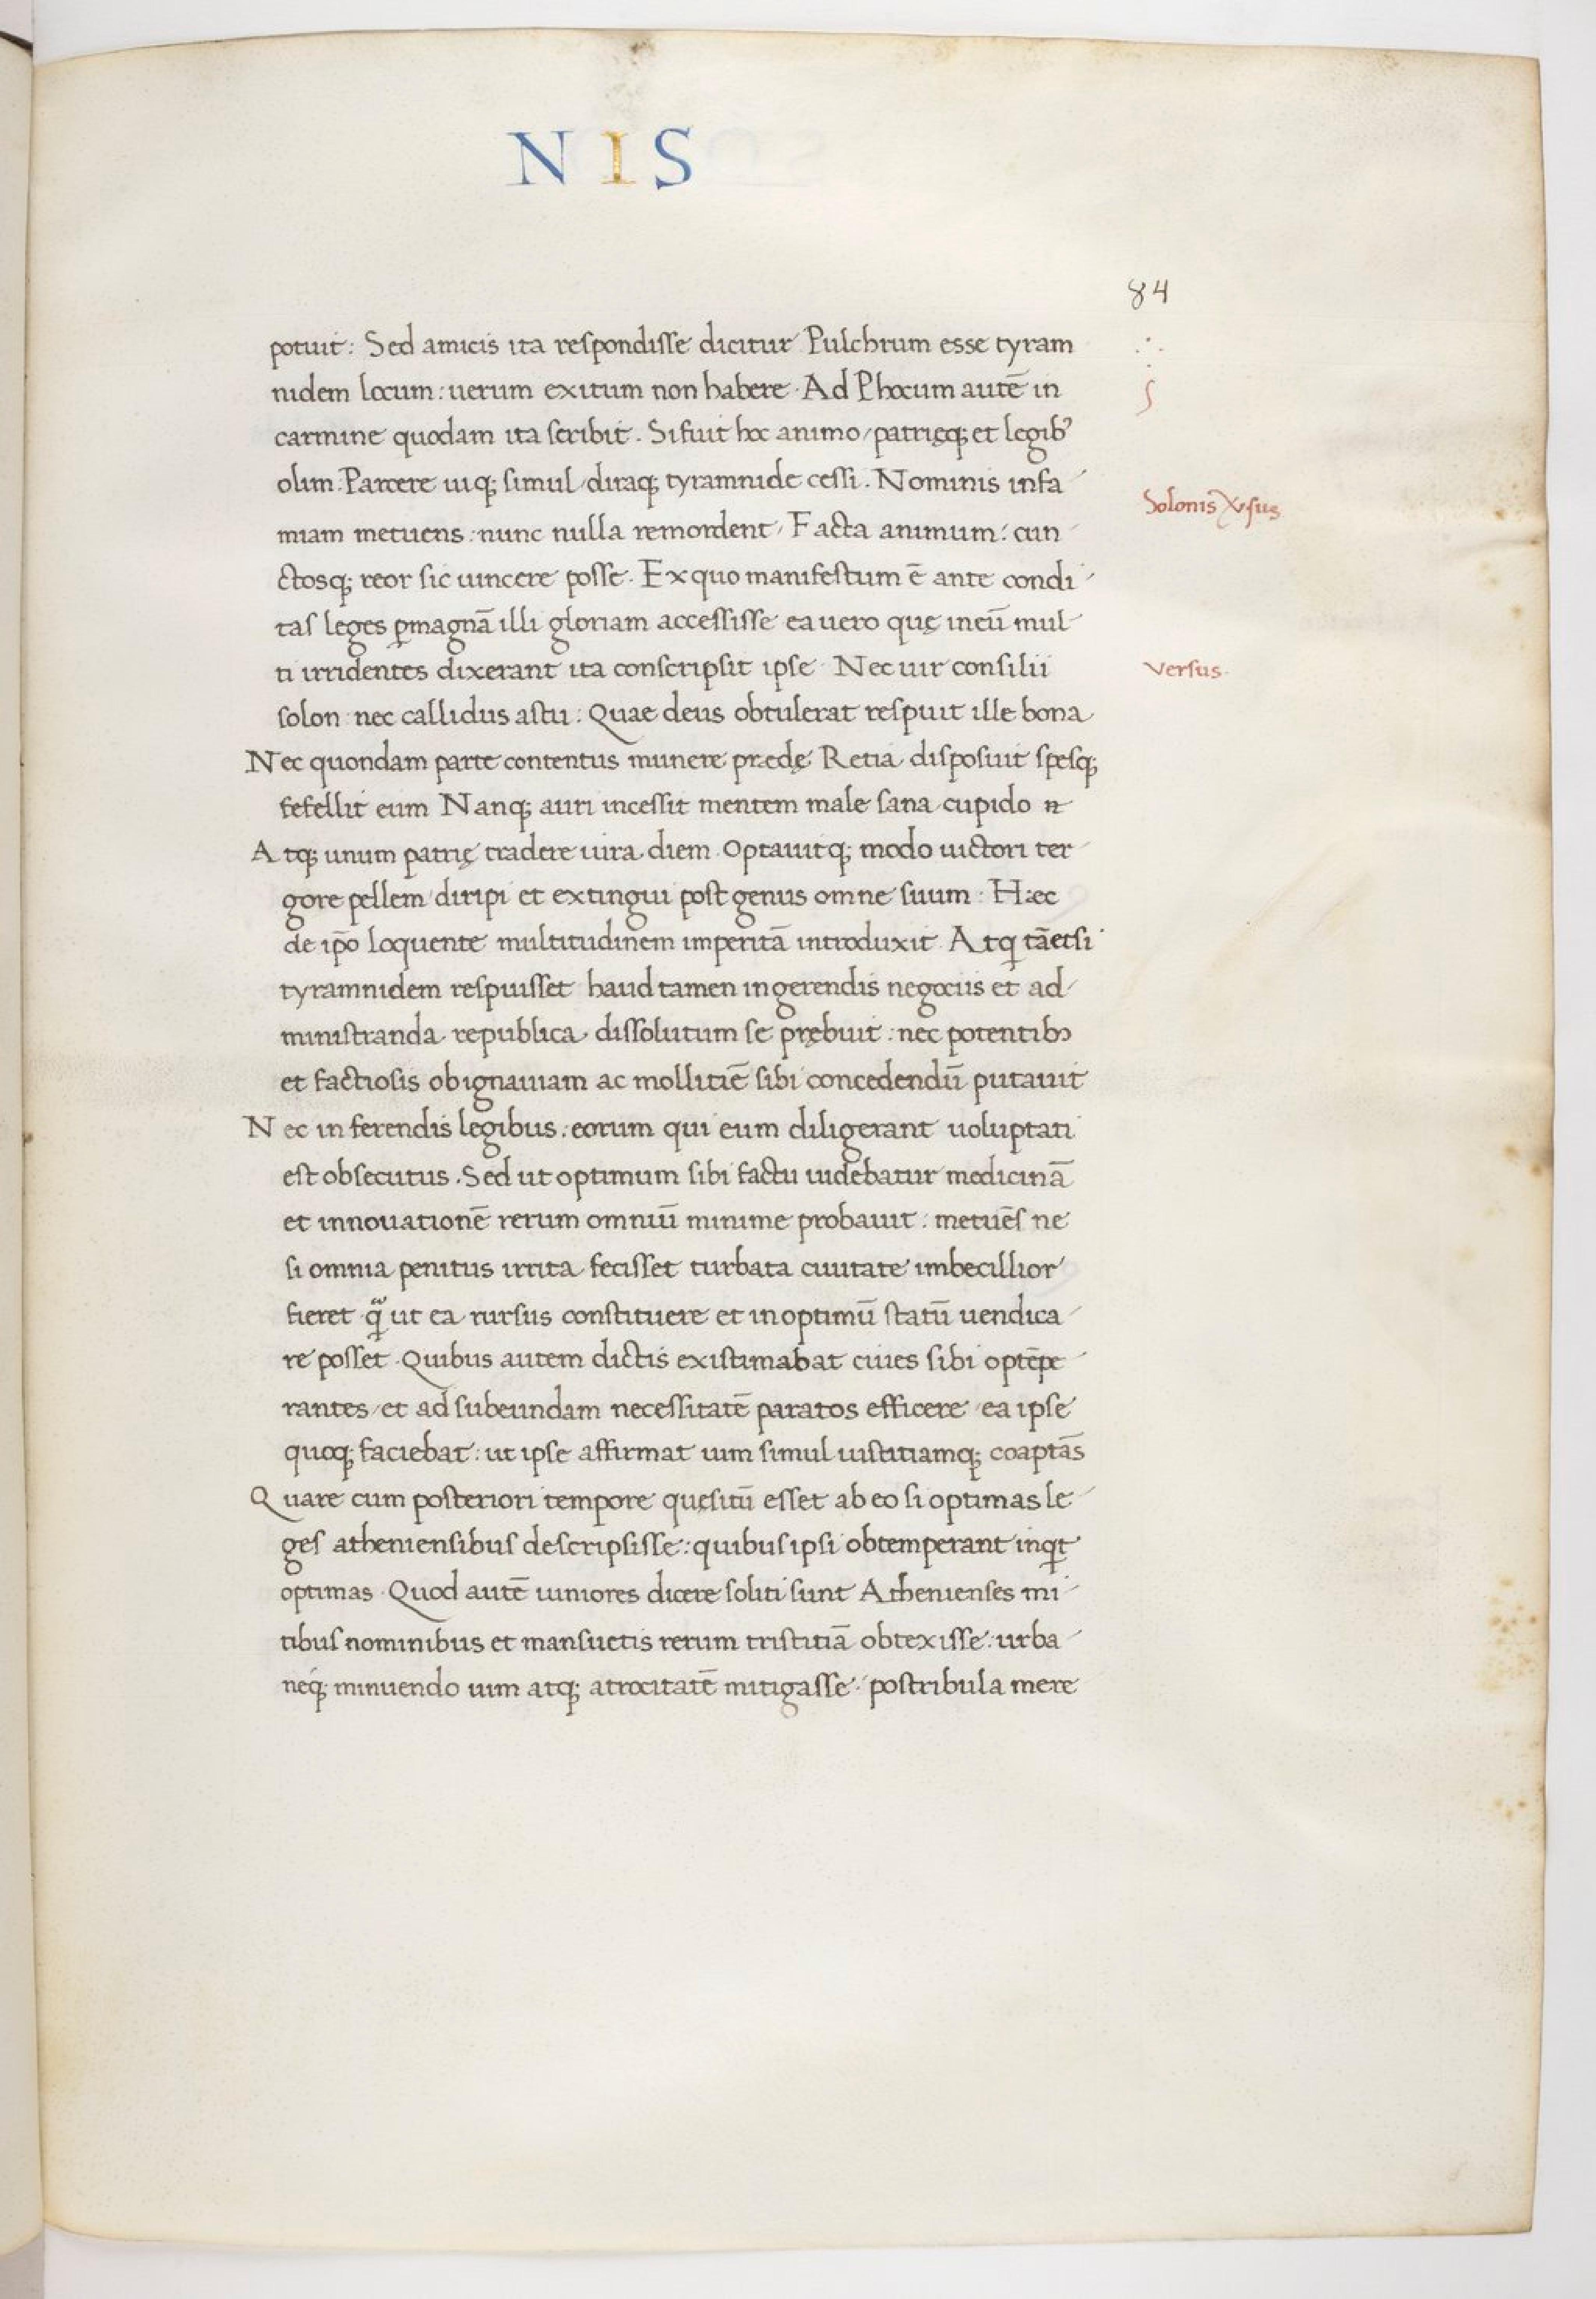 NIS
84
potuit: Sed amicis ita respondisse dicitur Pulchrum esse tyram
nidem locum: uerum exitum non habere. Ad Phocum autē in
carmine quodam ita scribit. Si fuit hoc animo / patrięq; et legib⁹
olim. Parcere uiq; simul / diraq; tyramnide cessi. Nominis infa
Solonis Versus
miam metuens: nunc nulla remordent / Facta animum: cun
ctosq; reor sic uincere posse. Ex quo manifestum ē ante condi
tas leges ꝑmagnā illi gloriam accessisse ea uero quę in eū mul
ti irridentes dixerant ita conscripsit ipse. Nec uir consilii
versus.
solon nec callidus astu: Quae deus obtulerat respuit ille bona
Nec quondam parte contentus munere prædę Retia disposuit spesq;
fefellit eum Nanq; auri incessit mentem male sana cupido
Atq; unum patrię tradere iura diem. Optauitq; modo uictori ter
gore pellem diripi et extingui post genus omne suum: Hæc
de ip̄o loquente multitudinem imperitā introduxit. Atq tāetsi
tyramnidem respuisset haud tamen in gerendis negociis et ad
ministranda republica dissolutum se prębuit: nec potentibꝫ
et factiosis ob ignauiam ac mollitiē sibi concedendū putauit
Nec in ferendis legibus: eorum qui eum diligerant uoluptati
est obsecutus. Sed ut optimum sibi factu uidebatur medicinā
et innouationē rerum omniū minime probauit: metuēs ne
si omnia penitus irrita fecisset turbata ciuitate imbecillior
fieret q̃ ut ea rursus constituere et in optimū statū uendica
re posset. Quibus autem dictis existimabat ciues sibi optēpe
rantes / et ad subeundam necessitatē paratos efficere ea ipse
quoq; faciebat: ut ipse affirmat uim simul iustitiamq; coaptās
Quare cum posteriori tempore quęsitū esset ab eo si optimas le
ges atheniensibus descripsisse: quibus ipsi obtemperant inqt
optimas. Quod autē iuniores dicere soliti sunt Athenienses mi
tibus nominibus et mansuetis rerum tristitiā obtexisse: urba
neq; minuendo uim atq; atrocitatē mitigasse: postribula mere